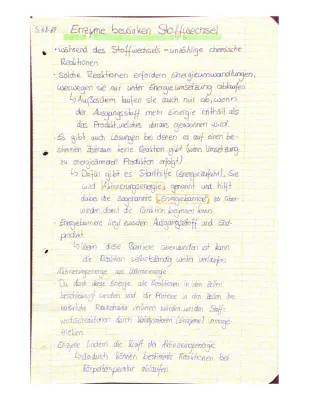 Enzyme bewirken Stoffwechsel
• während des Stoffwechsels - unzählige chemische
Reaktionen
• solche Reaktionen erfordern Energieumwandlungen,
weswegen sie nur unter Energieumsetzung ablaufen
↳ Außerdem laufen sie auch nur ab, wenn
der Ausgangsstoff mehr Energie enthält als
das Produkt, welches daraus gewonnen wird.
Es gibt auch Lösungen bei denen es auf einen be-
stimmten Zeitraum keine Reaktion gibt (wenn Umsetzung
zu energieärmeren Produkten erfolgt)
↳ Dafür gibt es Starthilfe (Energiezufuhr). Sie
wird Aktivierungsenergie genannt und hilft
dabei die sogenannte Energiebarriere zu über-
winden damit die Reaktion beginnen kann
• Energiebarriere liegt zwischen Ausgangsstoff und End-
produkt
↳ Wenn diese Barriere überwunden ist kann
die Reaktion selbstständig weiter verlaufen
Aktivierungsenergie aus Wärmeenergie
Da durch diese Energie alle Reaktionen in den Zellen
beschleunigt werden und die Proteine in den Zellen ihre
natürliche Raumstruktur verlieren würden werden Stoff-
wechselreaktionen durch Katalysatoren (Enzyme) vorange-
trieben
Enzyme der Aktivierungsenergie
↳ dadurch können bestimmte Reaktionen bei
Körpertemperatur ablaufen